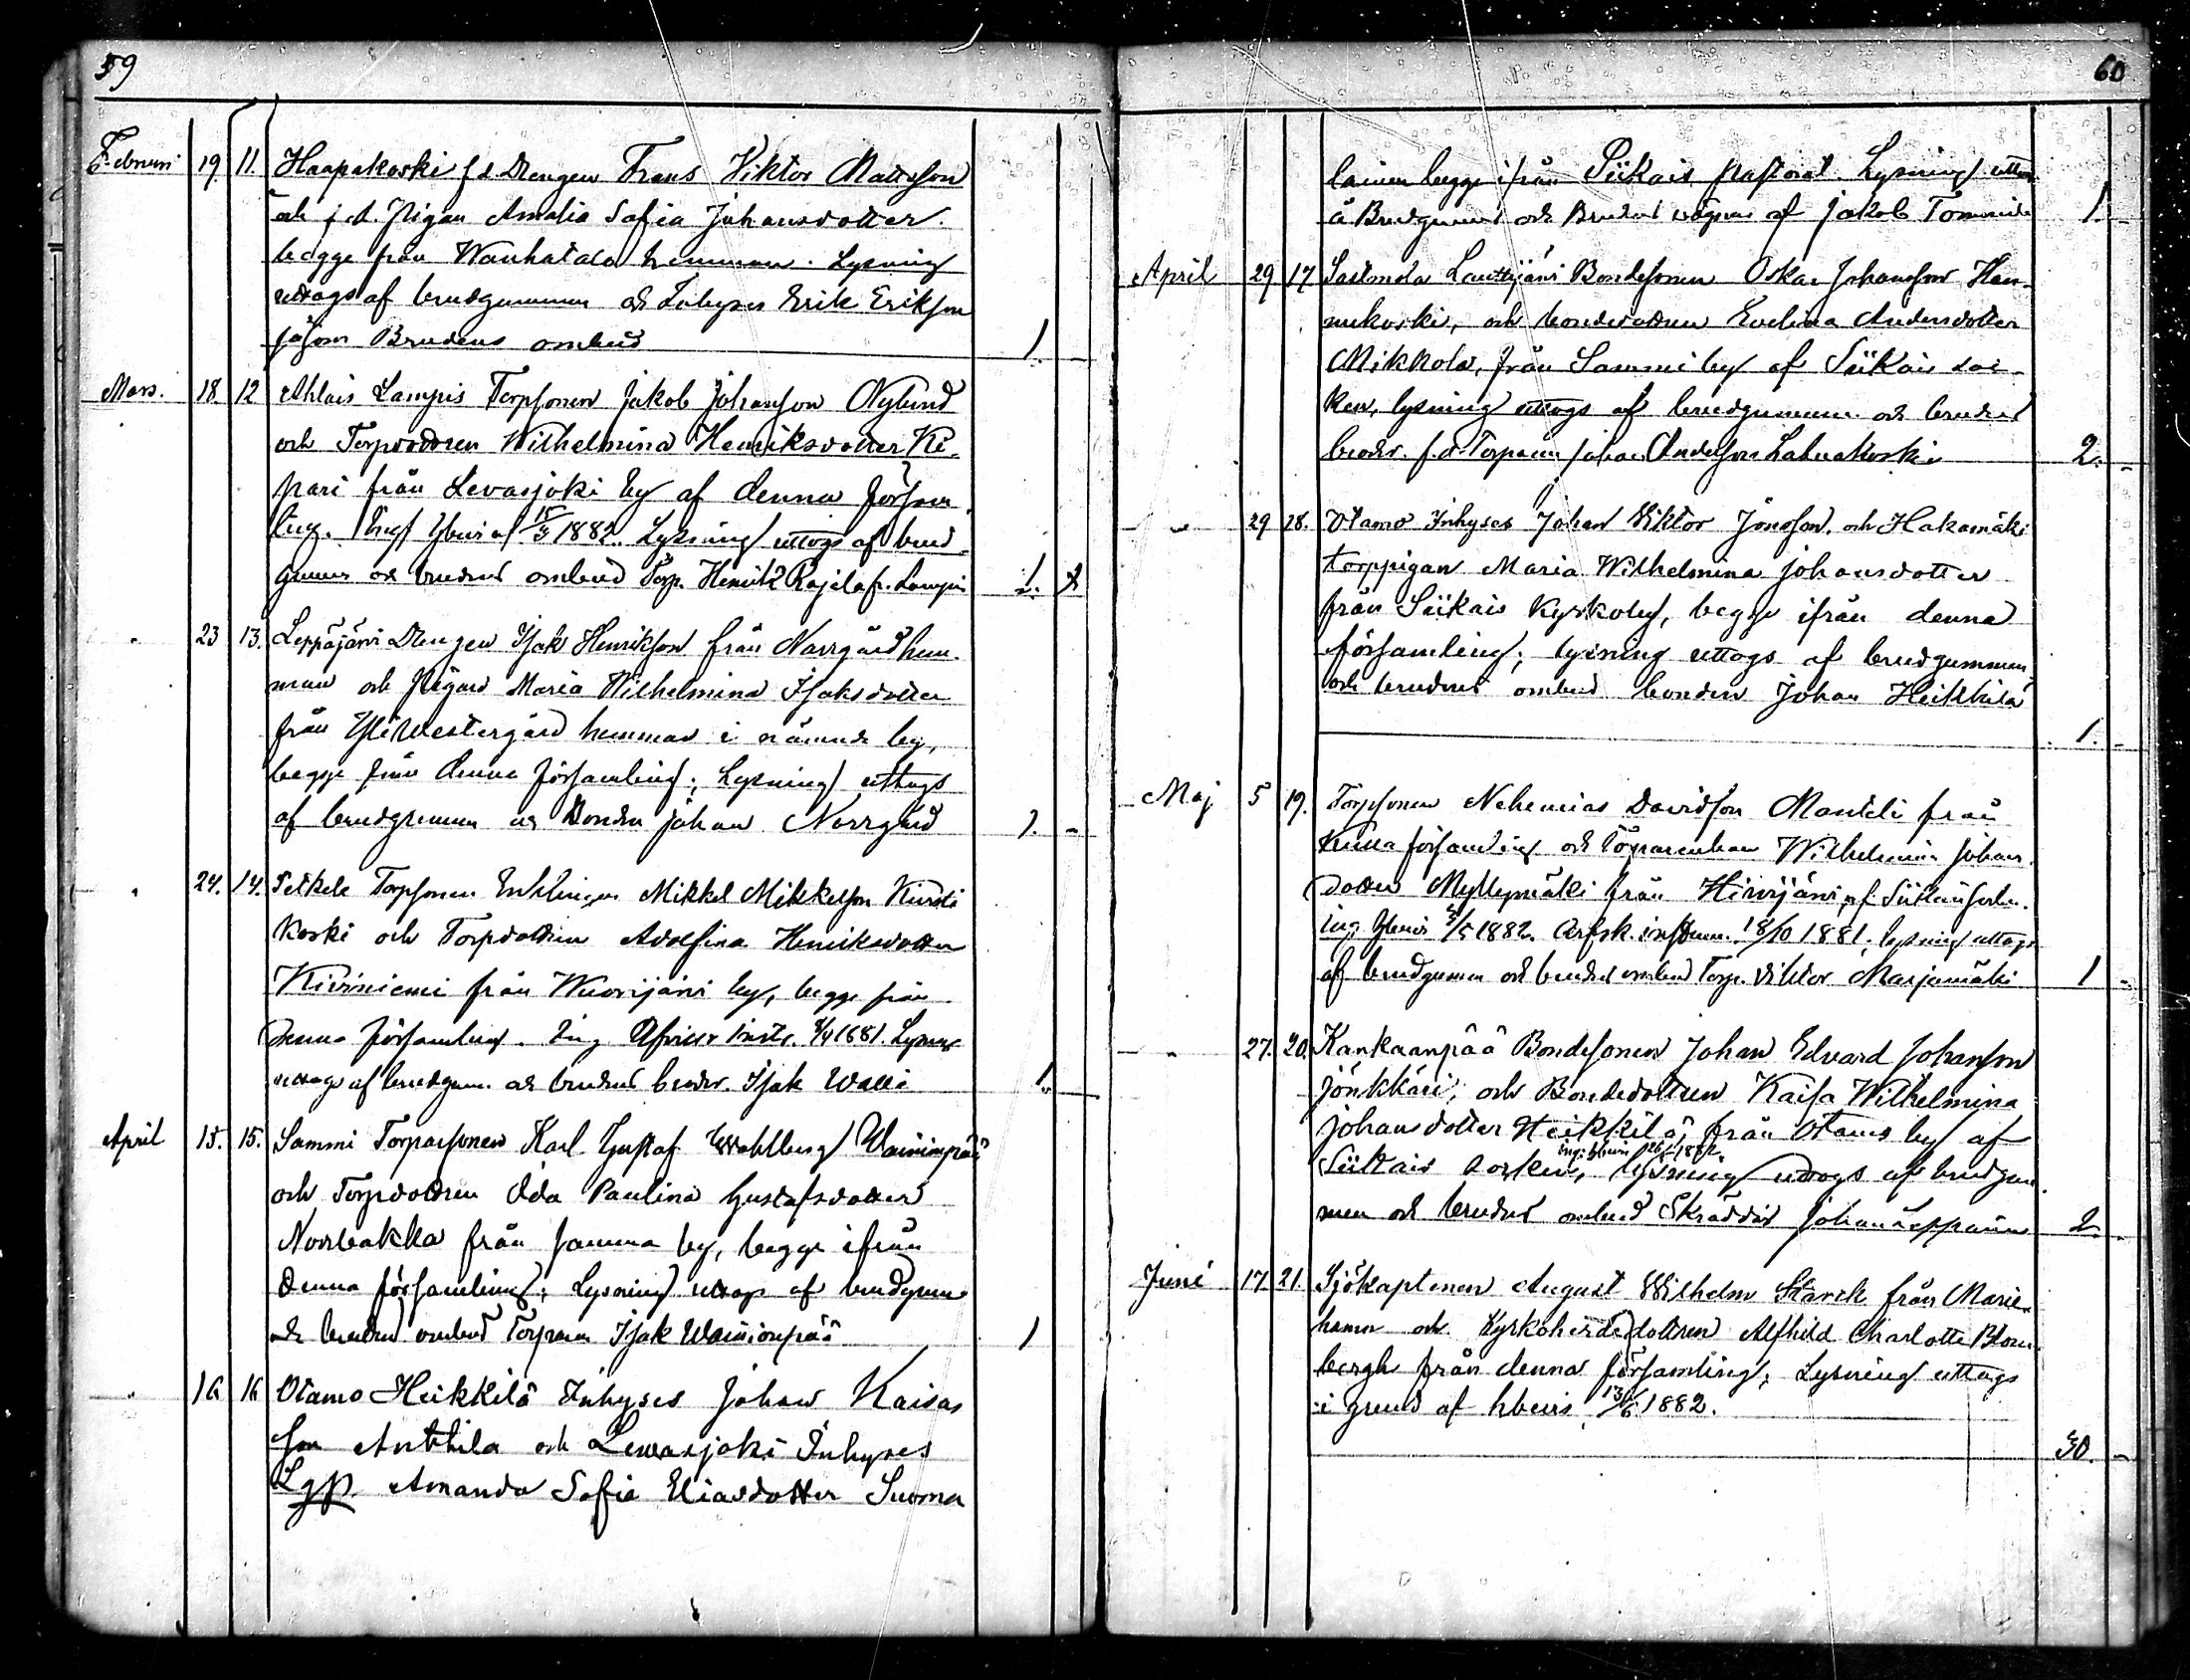 59
Februari 19. 11. Haapakoski f.d. Drengen Frans Viktor Mattsson
och f.d. Pigan Amalia Sofia Johansdotter
begge från Wanhatalo hemman. Lysning
uttogs af brudgummen och Inhyses Erik Erikson
såsom Brudens ombud 1.
Mars. 18. 12 Ahlais Lampis Torpsonen Jakob Johanson Nylund
och Torpdottren Wilhelmina Henriksdotter Ke-
pari från Levasjoki by af denna försam
ling. 1882. Lysning uttogs af brud-
gummen och brudens ombud Torp. Henrik Rajila fr. Lampis 1.
" 23 13. Leppäjärvi Drengen Isak Henrikson från Norrgård hem-
man och Pigan Maria Wilhelmina Isaksdotter
från Yliwestergård hemman i nämnde by,
begge från denna församling; Lysning uttogs
af brudgummen och Bonden Johan Norrgård 1. -
" 24. 14. Torpsonen Mikkel Mikkelson
koski och Torpdottren Adolfina Henriksdotter
Kiviniemi från Wuorijärvi by, begge från
denna församling. 1881. Lysning
uttogs af brudgum. och brudens broder. Isak Walli 1.
April 15. 15. Sammi Torparsonen Karl Gustaf Wahlberg Wainionpää
och Torpdottren Ida Paulina Gustafsdotter
Norrbakka från samma by, begge ifrån
denna församling; Lysning uttogs af brudgum
och brudens ombud Torparen Isak Wainionpää 1
" 16 16 Otamo Heikkilä Inhyses Johan Kaisas
son Anttila och Lewasjoki Inhyses
Lgp. Amanda Sofia Eliasdotter Suoma
60
lainen begge ifrån Siikais Pastorat. Lysning uttogs
å Brudgummens och Brudens vägnar af Jakob Tommila 1.
April 29 17 Sastmola Lauttijärvi Bondesonen Oskar Johansson Han-
nukoski, och bondedottren Evelina Andersdotter
Mikkola, från Sammi by af Siikais soc-
ken, lysning uttogs af brudgummen och brudens
broder. f.d. Torparen Johan Anderson Lahnakoski 2. -
" 29 18. Otamo Inhyses Johan Viktor Jonsson, och Hakamäki
torppigan Maria Wilhelmina Johansdotter
från Siikais Kyrkoby, begge ifrån denna
församling; lysning uttogs af brudgummen
och brudens ombud bonden Johan Heikkilä
1. -
Maj 5 19. Torpsonen Nehemias Davidson Mantila från
denna församling och Torparenkan Wilhelmina Johans-
dotter Myllymäki från Hirvijärvi, af Siikais försam-
ling, 4/5 1882. 18/10 1881. lysning uttogs
af brudgummen och brudens ombud Torp. Viktor Marjamäki 1 -
" 27. 20. Kankaanpää Bondesonen Johan Edvard Johanson
Jönkkäri, och Bondedottren Kaisa Wilhelmina
Johansdotter Heikkilä, från Otamo by af
Siikais socken, lysning uttogs af brudgum-
men och brudens ombud Skräddar Johan Seppänen 2.
Juni 17. 21. Sjökaptenen August Wilhelm Starck från Marie-
hamn och Kyrkoherdedottren Alfhild Charlotte Blom-
bergh från denna församling; Lysning uttogs
i grund af hbevis 13/6 1882.
30. -